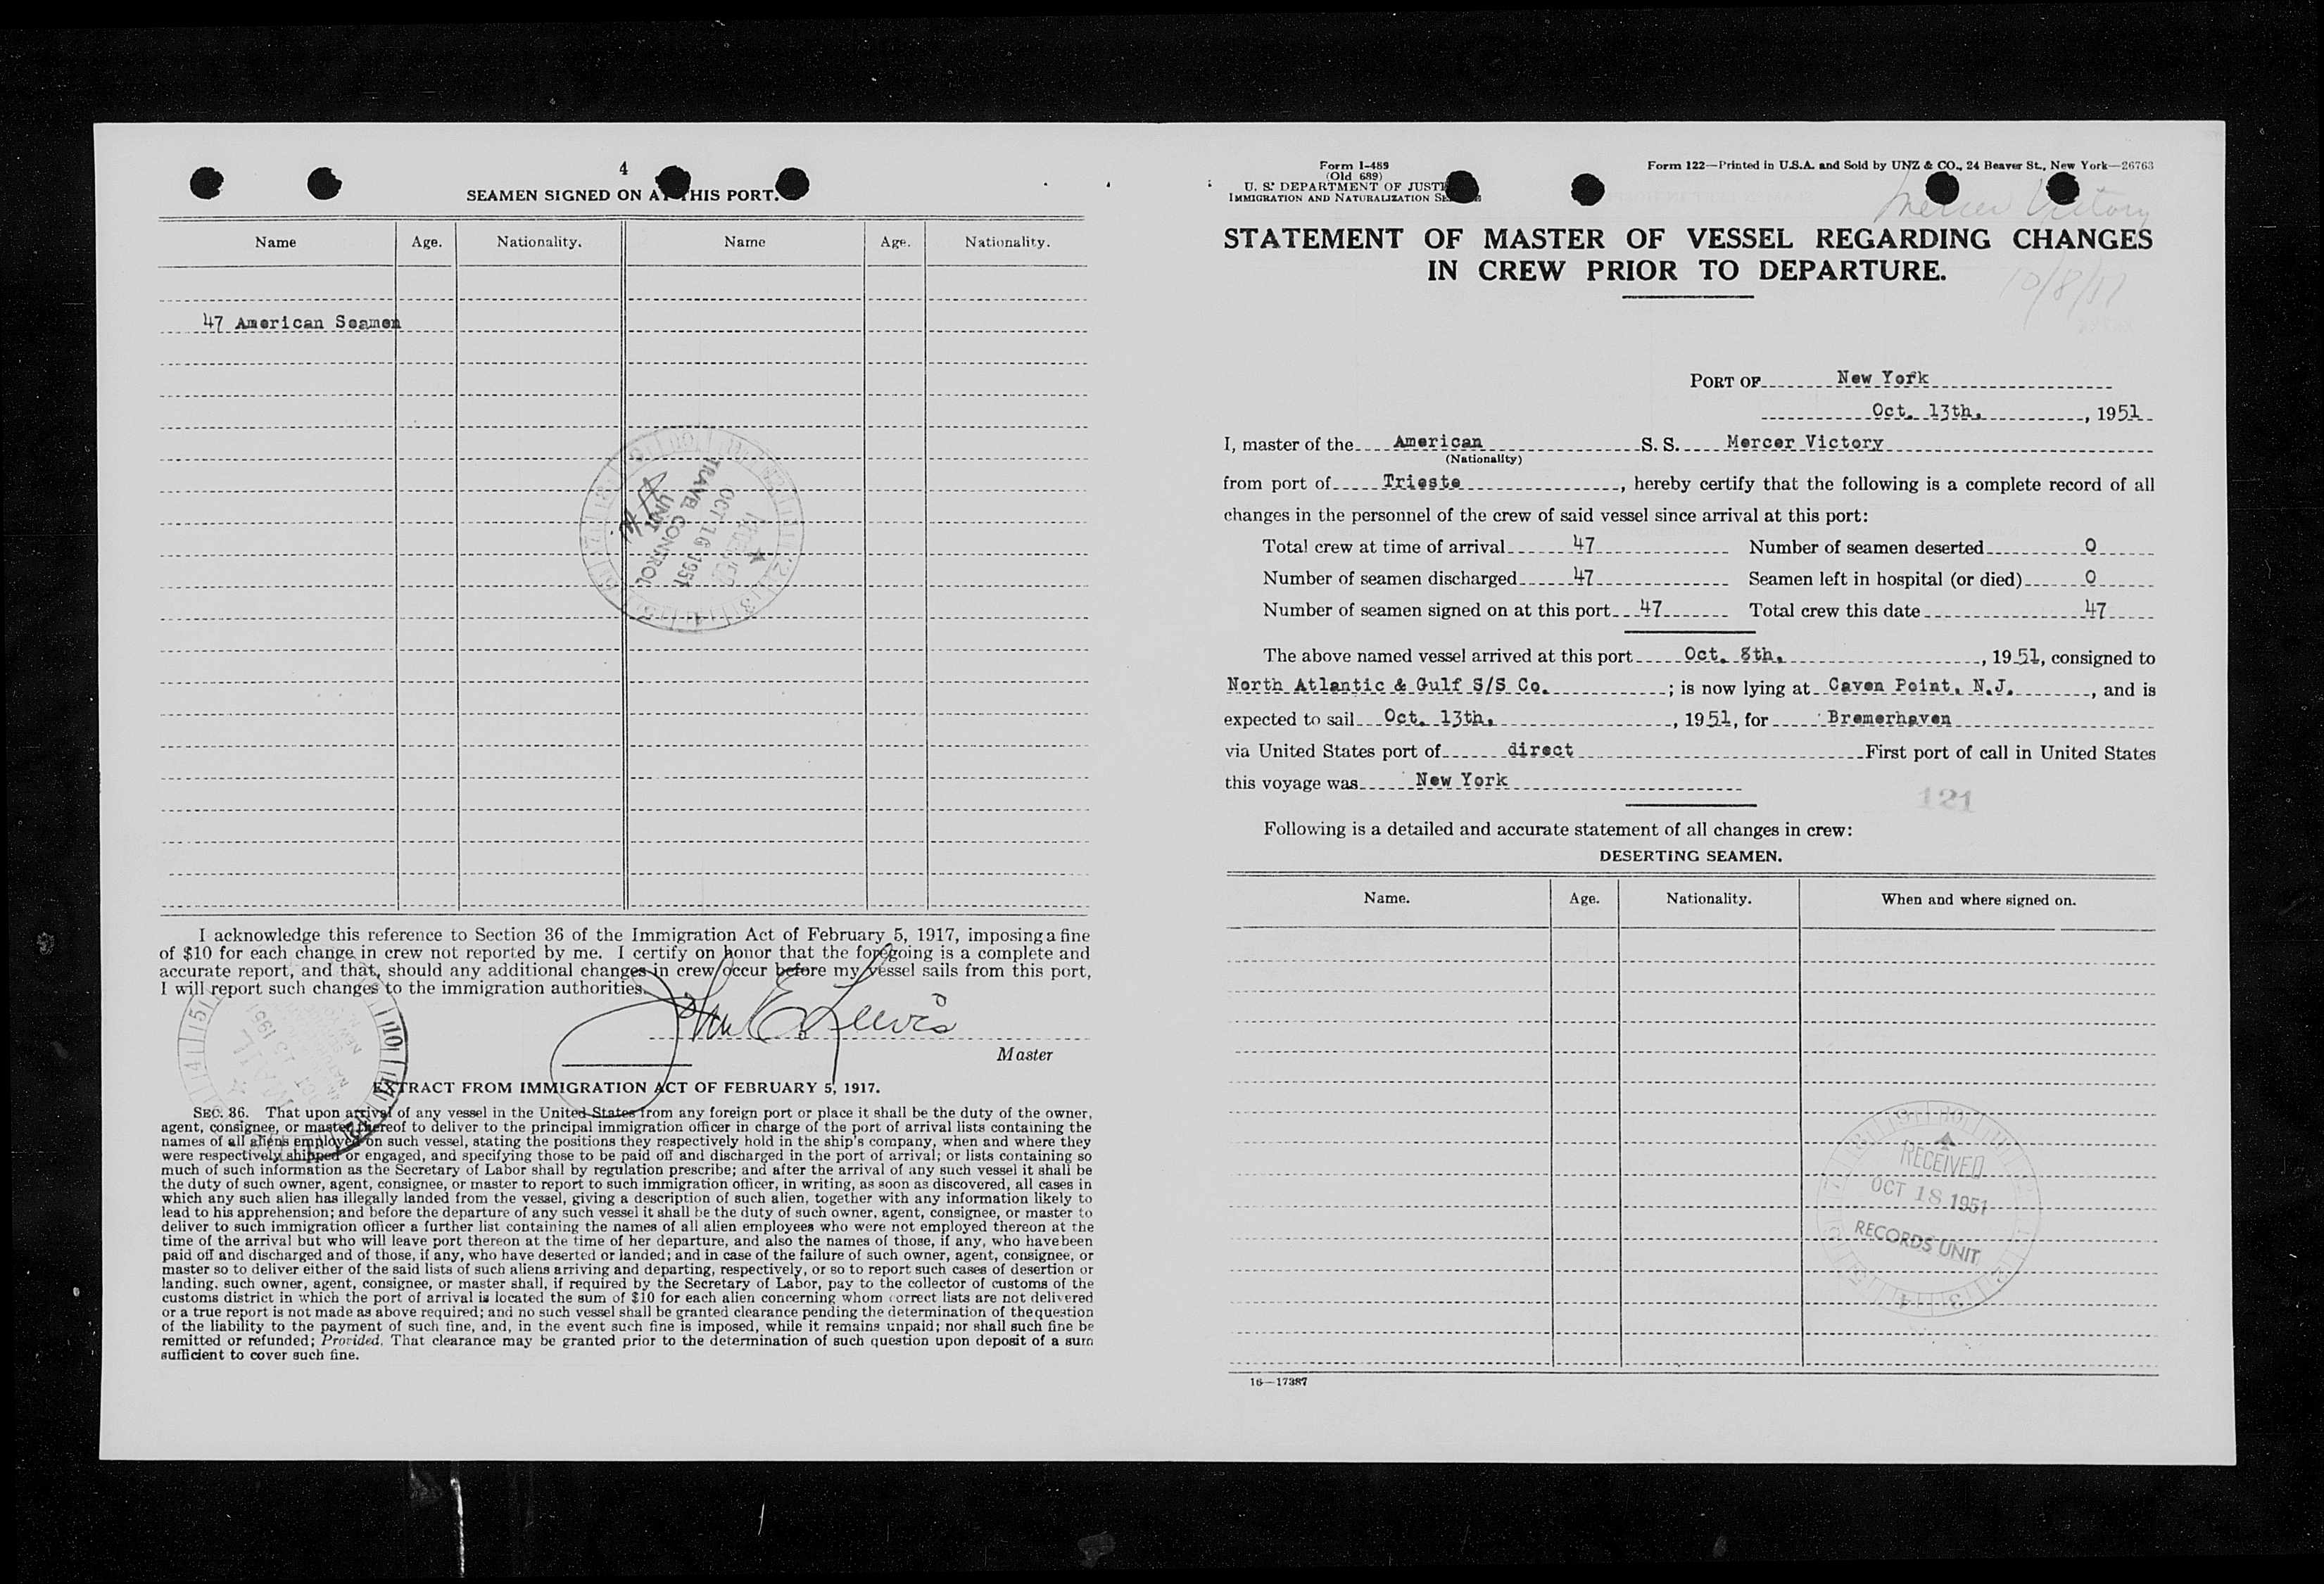 4
SEAMEN SIGNED ON AT THIS PORT.
Name Age. Nationality. Name Age. Nationality.
47 American Seamen
TRAVEL CONTROL
OCT 16 1951
UNIT
I acknowledge this reference to Section 36 of the Immigration Act of February 5, 1917, imposing a fine
of $10 for each change in crew not reported by me. I certify on honor that the foregoing is a complete and
accurate report, and that, should any additional changes in crew occur before my vessel sails from this port,
I will report such changes to the immigration authorities.
John E. Lewis
Master
MAIL
OCT 15 1951
EXTRACT FROM IMMIGRATION ACT OF FEBRUARY 5, 1917.
SEC. 36. That upon arrival of any vessel in the United States from any foreign port or place it shall be the duty of the owner,
agent, consignee, or master thereof to deliver to the principal immigration officer in charge of the port of arrival lists containing the
names of all aliens employed on such vessel, stating the positions they respectively hold in the ship's company, when and where they
were respectively shipped or engaged, and specifying those to be paid off and discharged in the port of arrival; or lists containing so
much of such information as the Secretary of Labor shall by regulation prescribe; and after the arrival of any such vessel it shall be
the duty of such owner, agent, consignee, or master to report to such immigration officer, in writing, as soon as discovered, all cases in
which any such alien has illegally landed from the vessel, giving a description of such alien, together with any information likely to
lead to his apprehension; and before the departure of any such vessel it shall be the duty of such owner, agent, consignee, or master to
deliver to such immigration officer a further list containing the names of all alien employees who were not employed thereon at the
time of the arrival but who will leave port thereon at the time of her departure, and also the names of those, if any, who have been
paid off and discharged and of those, if any, who have deserted or landed; and in case of the failure of such owner, agent, consignee, or
master so to deliver either of the said lists of such aliens arriving and departing, respectively, or so to report such cases of desertion or
landing, such owner, agent, consignee, or master shall, if required by the Secretary of Labor, pay to the collector of customs of the
customs district in which the port of arrival is located the sum of $10 for each alien concerning whom correct lists are not delivered
or a true report is not made as above required; and no such vessel shall be granted clearance pending the determination of the question
of the liability to the payment of such fine, and, in the event such fine is imposed, while it remains unpaid; nor shall such fine be
remitted or refunded; Provided, That clearance may be granted prior to the determination of such question upon deposit of a sum
sufficient to cover such fine.
Form I-489
(Old 689)
U. S. DEPARTMENT OF JUSTICE
IMMIGRATION AND NATURALIZATION SERVICE
Form 122—Printed in U.S.A. and Sold by UNZ & CO., 24 Beaver St., New York—26763
Mercer Victory
STATEMENT OF MASTER OF VESSEL REGARDING CHANGES
IN CREW PRIOR TO DEPARTURE.
10/8/51
PORT OF New York
Oct. 13th, , 1951
I, master of the American S. S. Mercer Victory
(Nationality)
from port of Trieste , hereby certify that the following is a complete record of all
changes in the personnel of the crew of said vessel since arrival at this port:
Total crew at time of arrival 47 Number of seamen deserted 0
Number of seamen discharged 47 Seamen left in hospital (or died) 0
Number of seamen signed on at this port 47 Total crew this date 47
The above named vessel arrived at this port Oct. 8th, , 1951, consigned to
North Atlantic & Gulf S/S Co. ; is now lying at Caven Point, N.J. , and is
expected to sail Oct. 13th, , 1951, for Bremerhaven
via United States port of direct First port of call in United States
this voyage was New York
121
Following is a detailed and accurate statement of all changes in crew:
DESERTING SEAMEN.
Name. Age. Nationality. When and where signed on.
RECEIVED
OCT 18 1951
RECORDS UNIT
16—17387